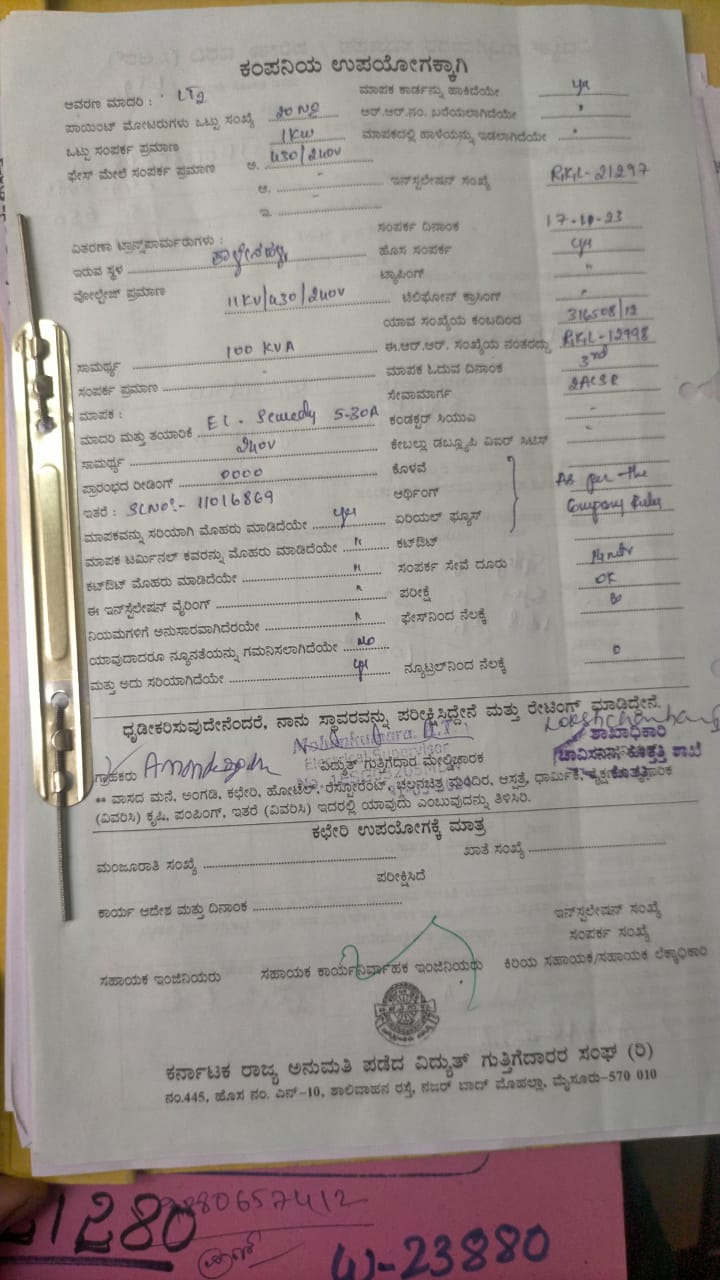 ಕಂಪನಿಯ ಉಪಯೋಗಕ್ಕಾಗಿ
ಆವರಣ ಮಾದರಿ : LT2 ಮಾಪಕ ಕಾರ್ಡನ್ನು ಹಾಕಿದೆಯೇ
ಪಾಯಿಂಟ್ ಮೋಟರುಗಳು ಒಟ್ಟು ಸಂಖ್ಯೆ 20 No ಆರ್.ಆರ್.ನಂ. ಬರೆಯಲಾಗಿದೆಯೇ "
ಒಟ್ಟು ಸಂಪರ್ಕ ಪ್ರಮಾಣ 1KW ಮಾಪಕದಲ್ಲಿ ಹಾಳೆಯನ್ನು ಇಡಲಾಗಿದೆಯೇ "
ಫೇಸ್ ಮೇಲೆ ಸಂಪರ್ಕ ಪ್ರಮಾಣ ಅ. 430/240V
ಆ. - ಇನ್ಸ್ಟಲೇಷನ್ ಸಂಖ್ಯೆ RKL-21297
ಇ. -
ಸಂಪರ್ಕ ದಿನಾಂಕ
ವಿತರಣಾ ಟ್ರಾನ್ಸ್‌ಫಾರ್ಮರುಗಳು : ಹೊಸ ಸಂಪರ್ಕ
ಇರುವ ಸ್ಥಳ ಟ್ಯಾಪಿಂಗ್ "
ವೋಲ್ಟೇಜ್ ಪ್ರಮಾಣ 11KV/430/240V ಟೆಲಿಫೋನ್ ಕ್ರಾಸಿಂಗ್ "
ಯಾವ ಸಂಖ್ಯೆಯ ಕಂಬದಿಂದ 316508/12
ಸಾಮರ್ಥ್ಯ 100 KVA ಈ.ಆರ್.ಆರ್. ಸಂಖ್ಯೆಯ ನಂತರದ್ದು RKL-12998
ಸಂಪರ್ಕ ಪ್ರಮಾಣ - ಮಾಪಕ ಓದುವ ದಿನಾಂಕ 3rd
ಮಾಪಕ : ಸೇವಾಮಾರ್ಗ
ಮಾದರಿ ಮತ್ತು ತಯಾರಿಕೆ 5-30A ಕಂಡಕ್ಟರ್ ಸಿಯುಎ -
ಸಾಮರ್ಥ್ಯ 240V ಕೇಬಲ್ಲು ಡಬ್ಲ್ಯೂಪಿ ವಿಐರ್ ಸಿಟಿಸ್ -
ಪ್ರಾರಂಭದ ರೀಡಿಂಗ್ 0000 ಕೊಳವೆ
ಇತರೆ : SLNo:- 11016869 ಆರ್ಥಿಂಗ್ As per the
ಮಾಪಕವನ್ನು ಸರಿಯಾಗಿ ಮೊಹರು ಮಾಡಿದೆಯೇ ಏರಿಯಲ್ ಫ್ಯೂಸ್ Company Rules
ಮಾಪಕ ಟರ್ಮಿನಲ್ ಕವರನ್ನು ಮೊಹರು ಮಾಡಿದೆಯೇ " ಕಟ್‌ಔಟ್
ಕಟ್‌ಔಟ್ ಮೊಹರು ಮಾಡಿದೆಯೇ " ಸಂಪರ್ಕ ಸೇವೆ ದೂರು
ಈ ಇನ್ಸ್ಟೆಲೇಷನ್ ವೈರಿಂಗ್ " ಪರೀಕ್ಷೆ OK
ನಿಯಮಗಳಿಗೆ ಅನುಸಾರವಾಗಿದೆರೆಯೇ " ಫೇಸ್‌ನಿಂದ ನೆಲಕ್ಕೆ
ಯಾವುದಾದರೂ ನ್ಯೂನತೆಯನ್ನು ಗಮನಿಸಲಾಗಿದೆಯೇ No
ಮತ್ತು ಅದು ಸರಿಯಾಗಿದೆಯೇ ನ್ಯೂಟ್ರಲ್‌ನಿಂದ ನೆಲಕ್ಕೆ
ಧೃಡೀಕರಿಸುವುದೇನೆಂದರೆ, ನಾನು ಸ್ಥಾವರವನ್ನು ಪರೀಕ್ಷಿಸಿದ್ದೇನೆ ಮತ್ತು ರೇಟಿಂಗ್ ಮಾಡಿದ್ದೇನೆ.
ಶಾಖಾಧಿಕಾರಿ
Electrical Supervisor
ಗ್ರಾಹಕರು ವಿದ್ಯುತ್ ಗುತ್ತಿಗೆದಾರ ಮೇಲ್ವಿಚಾರಕ
** ವಾಸದ ಮನೆ, ಅಂಗಡಿ, ಕಛೇರಿ, ಹೋಟೆಲ್, ರೆಸ್ಟೋರೆಂಟ್, ಚಲನಚಿತ್ರ ಮಂದಿರ, ಆಸ್ಪತ್ರೆ, ಧಾರ್ಮಿಕ,
(ವಿವರಿಸಿ) ಕೃಷಿ, ಪಂಪಿಂಗ್, ಇತರೆ (ವಿವರಿಸಿ) ಇದರಲ್ಲಿ ಯಾವುದು ಎಂಬುವುದನ್ನು ತಿಳಿಸಿರಿ.
ಕಛೇರಿ ಉಪಯೋಗಕ್ಕೆ ಮಾತ್ರ
ಮಂಜೂರಾತಿ ಸಂಖ್ಯೆ ಖಾತೆ ಸಂಖ್ಯೆ
ಪರೀಕ್ಷಿಸಿದೆ
ಕಾರ್ಯ ಆದೇಶ ಮತ್ತು ದಿನಾಂಕ ಇನ್ಸ್ಟಲೇಷನ್ ಸಂಖ್ಯೆ
ಸಂಪರ್ಕ ಸಂಖ್ಯೆ
ಸಹಾಯಕ ಇಂಜಿನಿಯರು ಸಹಾಯಕ ಕಾರ್ಯನಿರ್ವಾಹಕ ಇಂಜಿನಿಯರು ಕಿರಿಯ ಸಹಾಯಕ/ಸಹಾಯಕ ಲೆಕ್ಕಾಧಿಕಾರಿ
ಕರ್ನಾಟಕ ರಾಜ್ಯ ಅನುಮತಿ ಪಡೆದ ವಿದ್ಯುತ್ ಗುತ್ತಿಗೆದಾರರ ಸಂಘ (ರಿ)
ನಂ.445, ಹೊಸ ನಂ. ಎನ್-10, ಶಾಲಿವಾಹನ ರಸ್ತೆ, ನಜರ್ ಬಾದ್ ಮೊಹಲ್ಲಾ, ಮೈಸೂರು-570 010
21280
23880